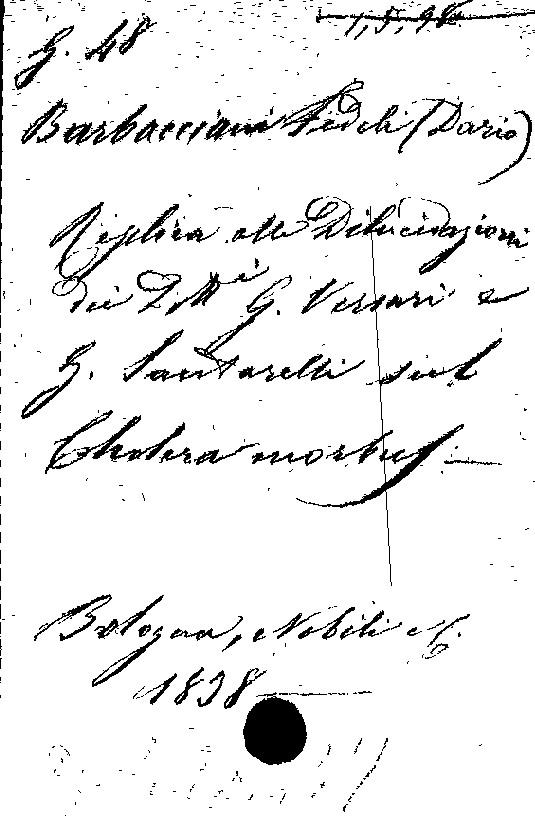 1,5,98
G. 48
Barbacciani Fedeli (Dario)
Replica alle Dilucidazioni
dei D.ri G. Versari e
G. Santarelli sul
Cholera morbus —
Bologna, Nobili e C.
1838 —